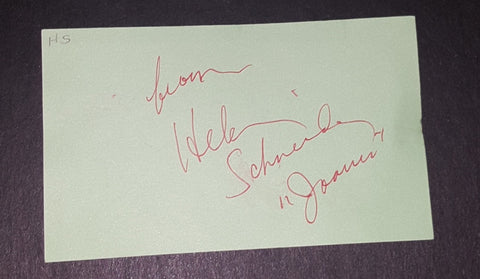 HS
from
Helen
Schneider
"Joanie"